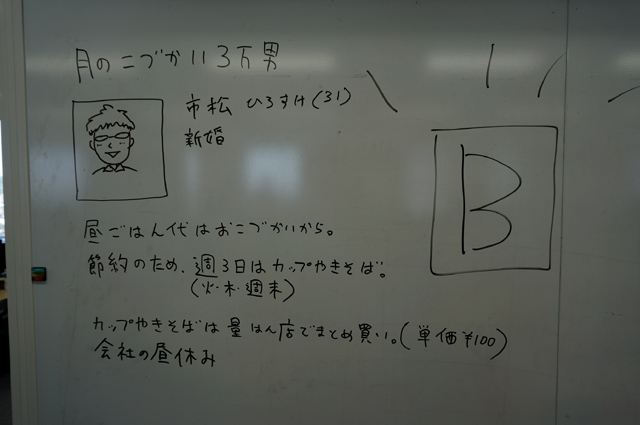 月のこづかい3万男
市松 ひろすけ(31)
新婚
B
昼ごはん代はおこづかいから。
節約のため、週3日はカップやきそば。
(火・木・週末)
カップやきそばは量はん店でまとめ買い。(単価¥100)
会社の昼休み